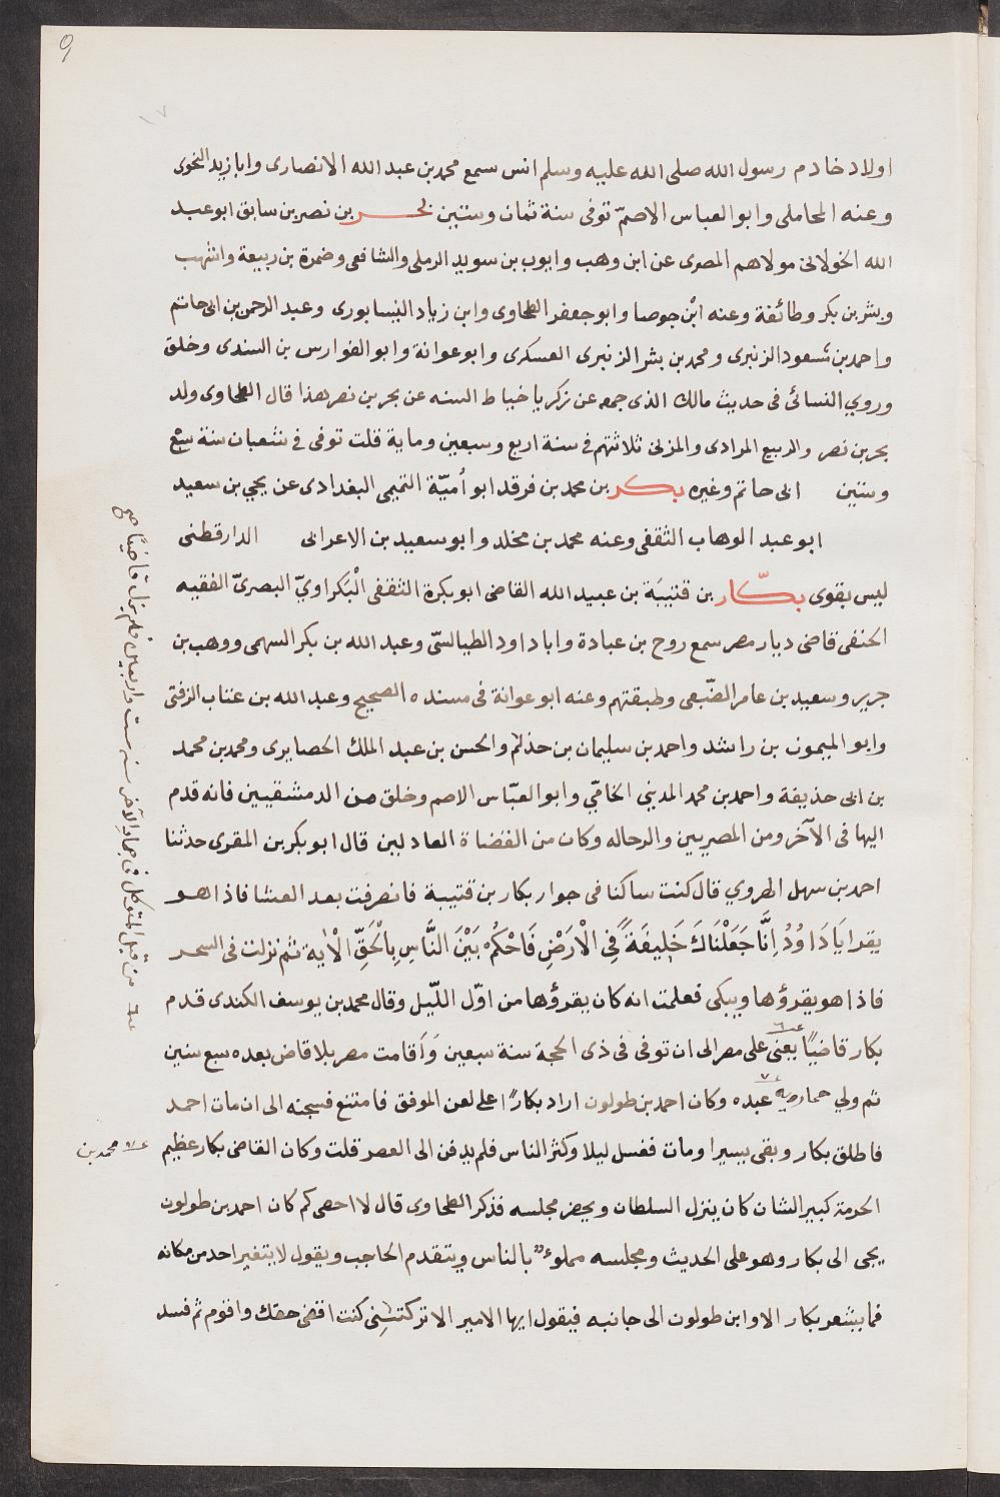 9
١٧
اولاد خادم رسول الله صلى الله عليه وسلم انس سمع محمد بن عبد الله الانصارى وابا زيد النحوى
وعنه المحاملى وابو العباس الاصمّ توفى سنة ثمان وستين بحر بن نصر بن سابق ابو عبد
الله الخولانى مولاهم المصرى عن ابن وهب وايوب بن سويد الرملى والشافعى وضمرة بن ربيعة واشهب
وبشر بن بكر وطائفة وعنه ابْن جوصا وابو جعفر الطحاوى وابن زياد النيسابورى وعبد الرحمن بن ابى حاتم
واحمد بن مسعود الزنبرى ومحمد بن بشر الزنبرى العسكرى وابو عوانة وابو الفوارس بن السندى وخلق
وروي النسائى فى حديث مالك الذى جمعه عن زكريا خياط السنه عن بحر بن نصر هذا قال الطحاوى ولد
بحر بن نصر والربيع المرادى والمزنى ثلاثتهم فى سنة اربع وسبعين وماية قلت توفى فى شعبان سنة سبع
وستين ابى حاتم وغيره بكر بن محمد بن فرقد ابو أميّة التميمى البغدادى عن يحيي بن سعيد
ابو عبد الوهاب الثقفى وعنه محمد بن مخلد وابو سعيد بن الاعرابى الدارقطنى
ليس بقوى بكّار بن قتيبَة بن عبيد الله القاضى ابو بكرة الثقفى الْبَكراويّ البصرىّ الفقيه
الحنفى قاضى ديار مصر سمع روح بن عبادة وابا داود الطيالسىّ وعبد الله بن بكر السهمى ووهب بن
جرير وسعيد بن عامر الضّبعى وطبقتهم وعنه ابو عوانة فى مسنده الصحيح وعبد الله بن عتاب الزفتى
وابو الميمون بن راشد واحمد بن سليمان بن حذلم والحسن بن عبد الملك الحصايرى ومحمد بن محمد
بن ابى حذيفة واحمد بن محمد المديني الخامّي وابو العبّاس الاصم وخلق من الدمشقيين فانه قدم
اليها فى الآخر ومن المصريين والرحاله وكان من القضاة العادلين قال ابو بكر بن المقرى حدثنا
احمد بن سهل الهروي قال كنت ساكنا فى جوار بكار بن قتيبة فانصرفت بعد العشا فاذا هو
يقرا يَا دَاوُدُ اِنَّا جَعَلْنَاكَ خَلِيفَةً فِى الْارَضِ فَاحْكُمْ بَيْنَ النَّاسِ بِالْحَقِّ الْاٰية ثم نزلت فى السحر
فاذا هو يقرؤها ويبكى فعلمت انه كان يقرؤها من اوّل اللّيل وقال محمد بن يوسف الكندى قدم
بكار قاضيًا يعنى على مصر الى ان توفى فى ذى الحجة سنة سبعين وَاَقامت مصر بلا قاض بعده سبع سنين
ثم ولي خمارويه عبده وكان احمد بن طولون اراد بكارًا على لعن الموفق فامتنع فسجنه الى ان مات احمد
فاطلق بكار وبقى يسيرا ومات فغسل ليلا وكثر الناس فلم يدفن الى العصر قلت وكان القاضى بكار عظيم
الحرمة كبير الشان كان ينزل السلطان ويحضر مجلسه فذكر الطحاوى قال لا احصى كم كان احمد بن طولون
يجى الى بكار وهو على الحديث ومجلسه مملوءٌ بالناس ويتقدم الحاجب ويقول لا يتغير احد من مكانه
فما يشعر بكار الا وابن طولون الى جانبه فيقول ايها الامير الا تركتنِى كنت اقضى حقك واقوم ثم فسد
من قبل المتوكل فى جمادى الآخر سنه ست واربعين فلم يزل قاضيًا صح
محمد بن